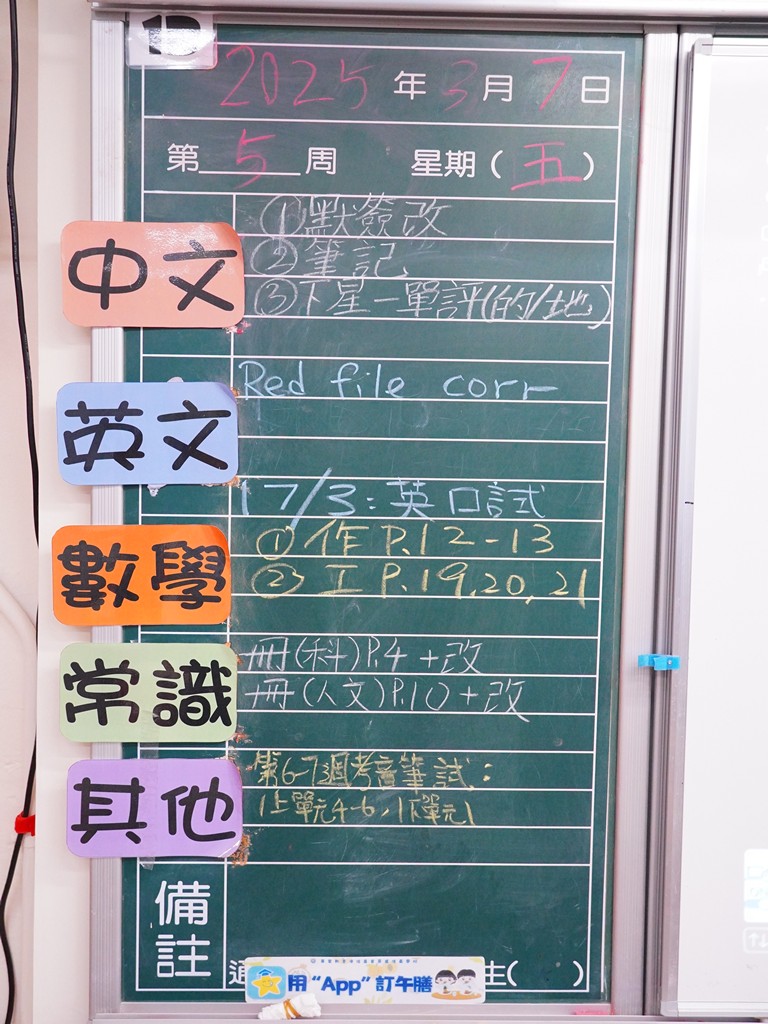 2025年3月7日
第5周 星期（五）
①默簽改
中文
②筆記
③下星一單評(的/地)
Red file corr
英文
17/3:英口試
①作P.12-13
數學
②工P.19,20,21
冊(科)P.4+改
常識
冊(人文)P.10+改
第6-7週考音筆試:
其他
1上單元4-6,1下單元1
備註
用“App”訂午膳
生( )